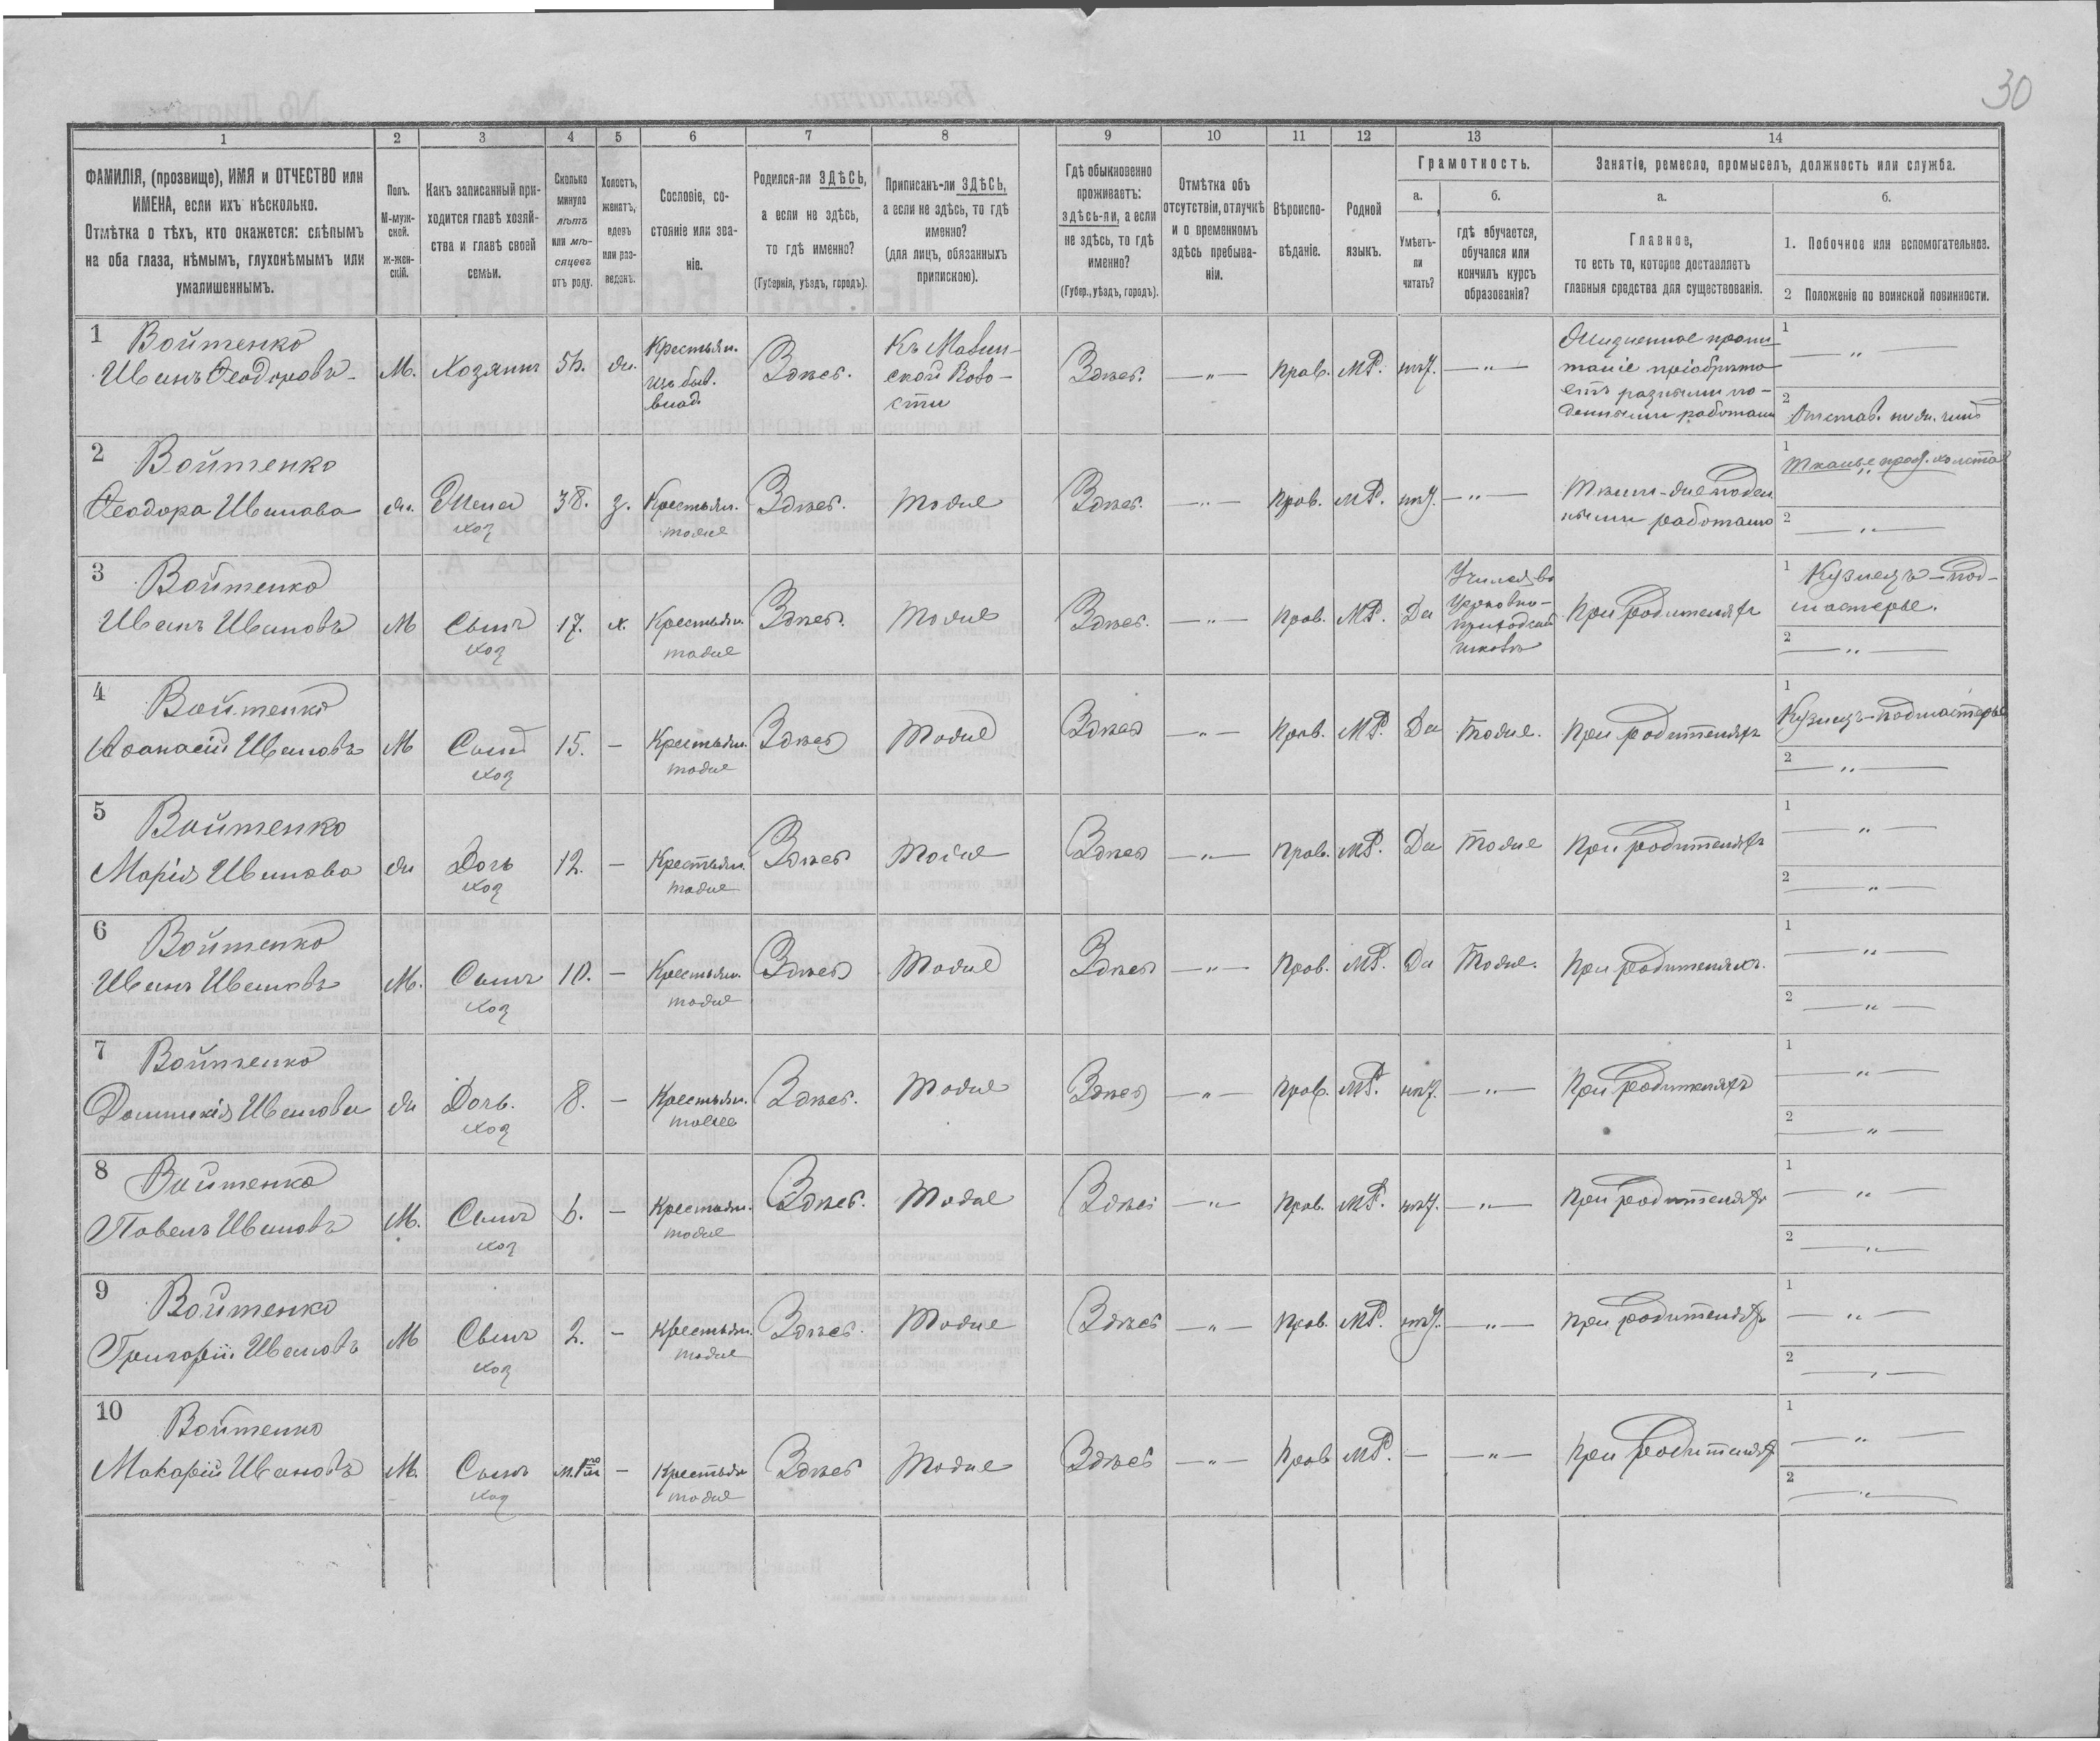 30
1 2 3 4 5 6 7 8 9 10 11 12 13 14
ФАМИЛІЯ, (прозвище), ИМЯ и ОТЧЕСТВО или
ИМЕНА, если ихъ нѣсколько.
Отмѣтка о тѣхъ, кто окажется: слѣпымъ
на оба глаза, нѣмымъ, глухонѣмымъ или
умалишеннымъ.
Полъ.
М-муж-
ской.
ж-жен-
скій.
Какъ записанный при-
ходится главѣ хозяй-
ства и главѣ своей
семьи.
Сколько
минуло
лѣтъ
или мѣ-
сяцевъ
отъ роду.
Холостъ,
женатъ,
вдовъ
или раз-
веденъ.
Сословіе, со-
стояніе или зва-
ніе.
Родился-ли ЗДѢСЬ,
а если не здѣсь,
то гдѣ именно?
(Губернія, уѣздъ, городъ).
Приписанъ-ли ЗДѢСЬ,
а если не здѣсь, то гдѣ
именно?
(для лицъ, обязанныхъ
припискою).
Гдѣ обыкновенно
проживаетъ:
здѣсь-ли, а если
не здѣсь, то гдѣ
именно?
(Губер., уѣздъ, городъ).
Отмѣтка объ
отсутствіи, отлучкѣ
и о временномъ
здѣсь пребыва-
ніи.
Вѣроиспо-
вѣданіе.
Родной
языкъ.
Грамотность.
а.
Умѣетъ-
ли
читать?
б.
гдѣ обучается,
обучался или
кончилъ курсъ
образованія?
Занятіе, ремесло, промыселъ, должность или служба.
а.
Главное,
то есть то, которое доставляетъ
главныя средства для существованія.
б.
1. Побочное или вспомогательное.
2 Положеніе по воинской повинности.
1 Войтенко
Иванъ Ѳеодоровъ
М. Хозяинъ 54. ж.
Крестьян.
изъ быв.
влад.
Здѣсь.
Къ
ской Воло-
сти
Здѣсь. —„— прав. МР. нѣт. —„—
Жизненное пропи-
таніе пріобрѣта-
етъ разными по-
денными работами
1 —„—
2 Отстав. чинъ
2 Войтенко
Ѳеодора Иванова
ж. Жена
хоз
38. з. Крестьян.
тоже
Здѣсь. тоже Здѣсь. —„— прав. МР. нѣт. —„—
поден
ными работами
1 Тканье холста
2 —„—
3 Войтенко
Иванъ Ивановъ
М Сынъ
хоз
17. х. Крестьян.
тоже
Здѣсь. тоже Здѣсь. —„— прав. МР. Да
Церковно-
приходской
При родителяхъ
1 Кузнецъ-под-
мастерье.
2 —„—
4 Войтенко
Аѳанасій Ивановъ
М Сынъ
хоз
15. — Крестьян.
тоже
Здѣсь тоже Здѣсь —„— прав. МР. Да тоже. При родителяхъ
1 Кузнецъ-подмастерье
2 —„—
5 Войтенко
Марія Иванова
ж Дочь
хоз
12. — Крестьян.
тоже
Здѣсь тоже Здѣсь —„— прав. МР. Да тоже При родителяхъ
1 —„—
2 —„—
6 Войтенко
Иванъ Ивановъ
М. Сынъ
хоз
10. — Крестьян.
тоже
Здѣсь тоже Здѣсь —„— прав. МР. Да тоже. При родителяхъ.
1 —„—
2 —„—
7 Войтенко
Домникія Иванова
ж Дочь.
хоз
8. — Крестьян.
тоже
Здѣсь. тоже Здѣсь —„— прав. МР. нѣт. —„— При родителяхъ
1 —„—
2 —„—
8 Войтенко
Павелъ Ивановъ
М. Сынъ
хоз
6. — Крестьян.
тоже
Здѣсь. тоже Здѣсь —„— прав. МР. нѣт. —„— При родителяхъ
1 —„—
2 —„—
9 Войтенко
Григорій Ивановъ
М Сынъ
хоз
2. — Крестьян.
тоже
Здѣсь. тоже Здѣсь —„— прав. МР. нѣт. —„— при родителяхъ
1 —„—
2 —„—
10 Войтенко
Макарій Ивановъ
М. Сынъ
хоз
— Крестьян
тоже
Здѣсь тоже Здѣсь —„— прав МР. — —„— При родителях
1 —„—
2 —„—